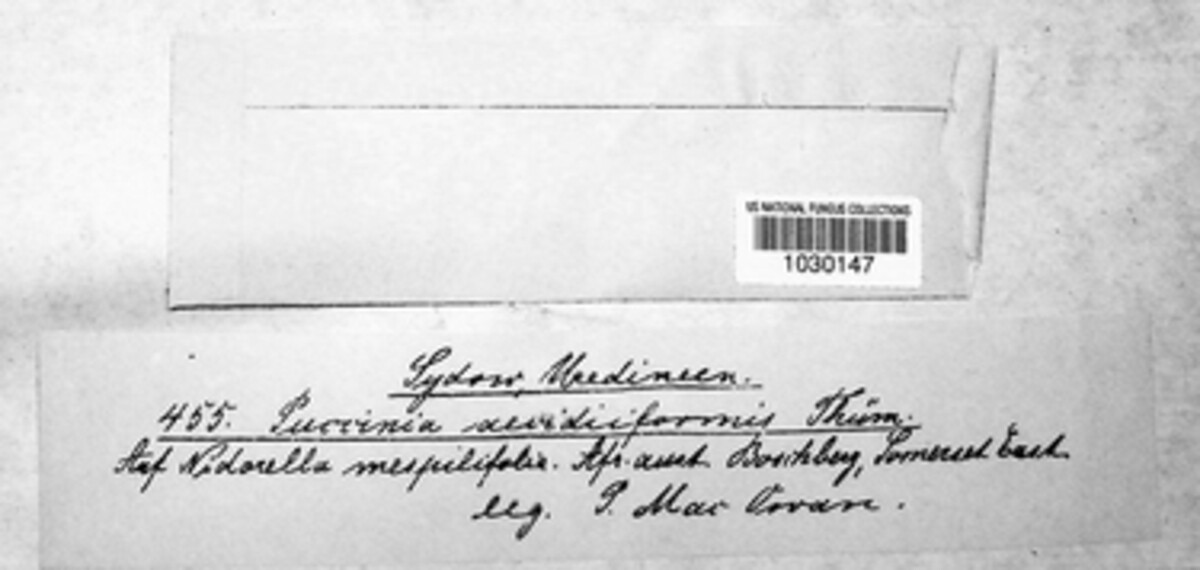 US NATIONAL FUNGUS COLLECTIONS
1030147
Sydow, Uredineen.
455. Puccinia aecidiiformis Thüm.
Auf Nidorella mespilifolia. Afr. aust. Boschberg, Somerset East
leg. P. Mac Owan.